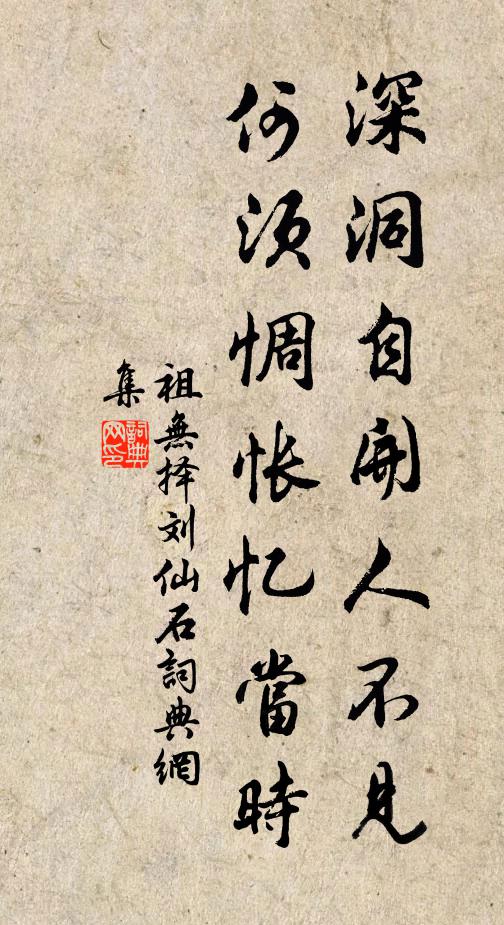 深洞自開人不見
何須惆怅忆當時
祖無择刘仙石詞典網
集
詞典网印